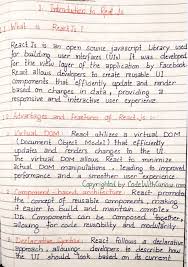 1. Introduction to React Js
1.1 What is ReactJs?
ReactJs is an open source javascript library used
for building user interfaces (UIs). It was developed
for the view layer of the application by Facebook.
React allows developers to create reusable UI
components that efficiently update and render
based on changes in data, providing a
responsive and interactive user experience.
1.2 Advantages and Features of ReactJs:
1. Virtual DOM: React utilizes a virtual DOM
(Document Object Model) that efficiently
updates and renders changes to the UI.
The virtual DOM allows React to minimize
actual DOM manipulations, leading to improved
performance and a smoother user experience.
Copyrighted by CodeWithCurious.com
2. Component-based architecture: React promotes
the concept of reusable components, making
it easier to build and maintain complex
UIs. Components can be composed together,
allowing for code reusability and modularity.
3. Declarative Syntax: React follows a declarative
approach allowing developers to describe how
the UI should look based on its current